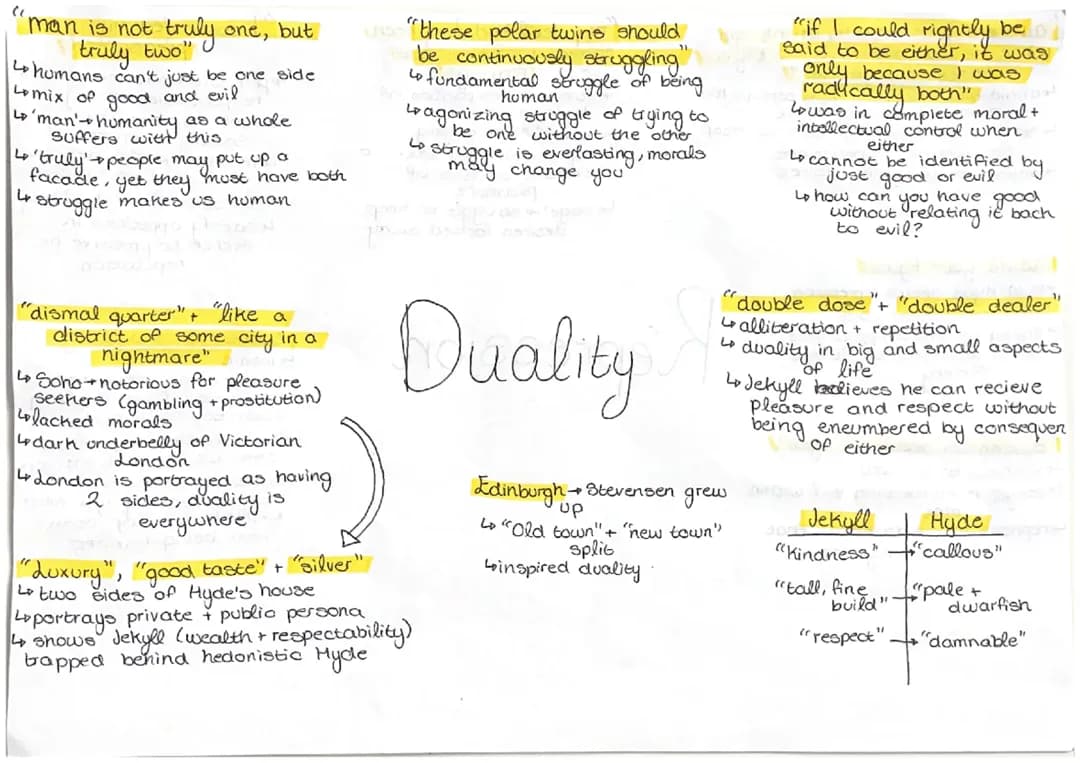 "man is not truly one, but
truly two"
↳humans can't just be one side
↳mix of good and evil
↳'man'→humanity as a whole
suffers with this
↳'truly'→people may put up a
facade, yet they must have both
↳struggle makes us human
"these polar twins should
be continuously struggling"
↳fundamental struggle of being
human
↳agonizing struggle of trying to
be one without the other
↳struggle is everlasting, morals
may change you
"if I could rightly be
said to be either, it was
only because I was
radically both"
↳was in complete moral+
intellectual control when
either
↳cannot be identified by
just good or evil
↳how can you have good
without relating it back
to evil?
"dismal quarter" + "like a
district of some city in a
nightmare"
↳Soho→notorious for pleasure
seekers (gambling + prostitution)
↳lacked morals
↳dark underbelly of Victorian
London
↳London is portrayed as having
2 sides, duality is
everywhere
Duality
"double dose" + "double dealer"
↳alliteration + repetition
↳duality in big and small aspects
of life
↳Jekyll believes he can recieve
pleasure and respect without
being eneumbered by consequen
of either
Edinburgh→Stevensen grew
up
↳"Old town" + "new town"
split
↳inspired duality
"Luxury", "good taste" + "silver"
↳two sides of Hyde's house
↳portrays private + public persona
↳shows Jekyll (wealth + respectability)
trapped behind hedonistic Hyde
Jekyll Hyde
"Kindness" → "callous"
"tall, fine
build" → "pale +
dwarfish
"respect" → "damnable"